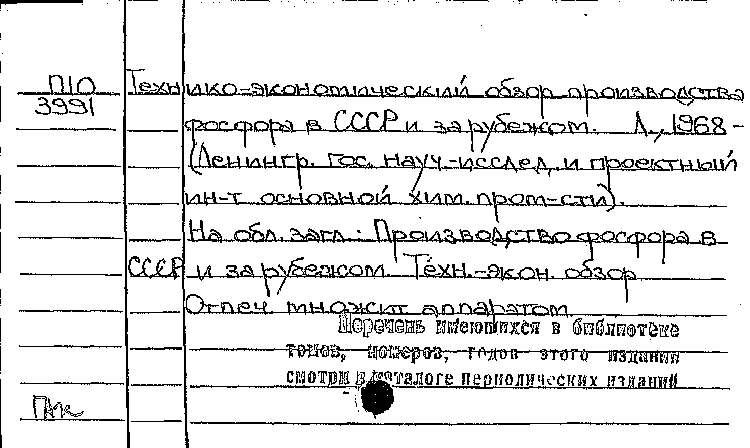 П10 Технико-экономический обзор производства
3991 фосфора в СССР и за рубежом. Л., 1968-
(Ленингр. гос. науч.-исслед. и проектный
ин-т основной хим. пром-сти).
На обл. загл.: Производство фосфора в
СССР и за рубежом. Техн.-экон. обзор
Отпеч. множит. аппаратом
Перечень имеющихся в библиотеке
томов, номеров, годов этого издания
смотри в каталоге периодических изданий